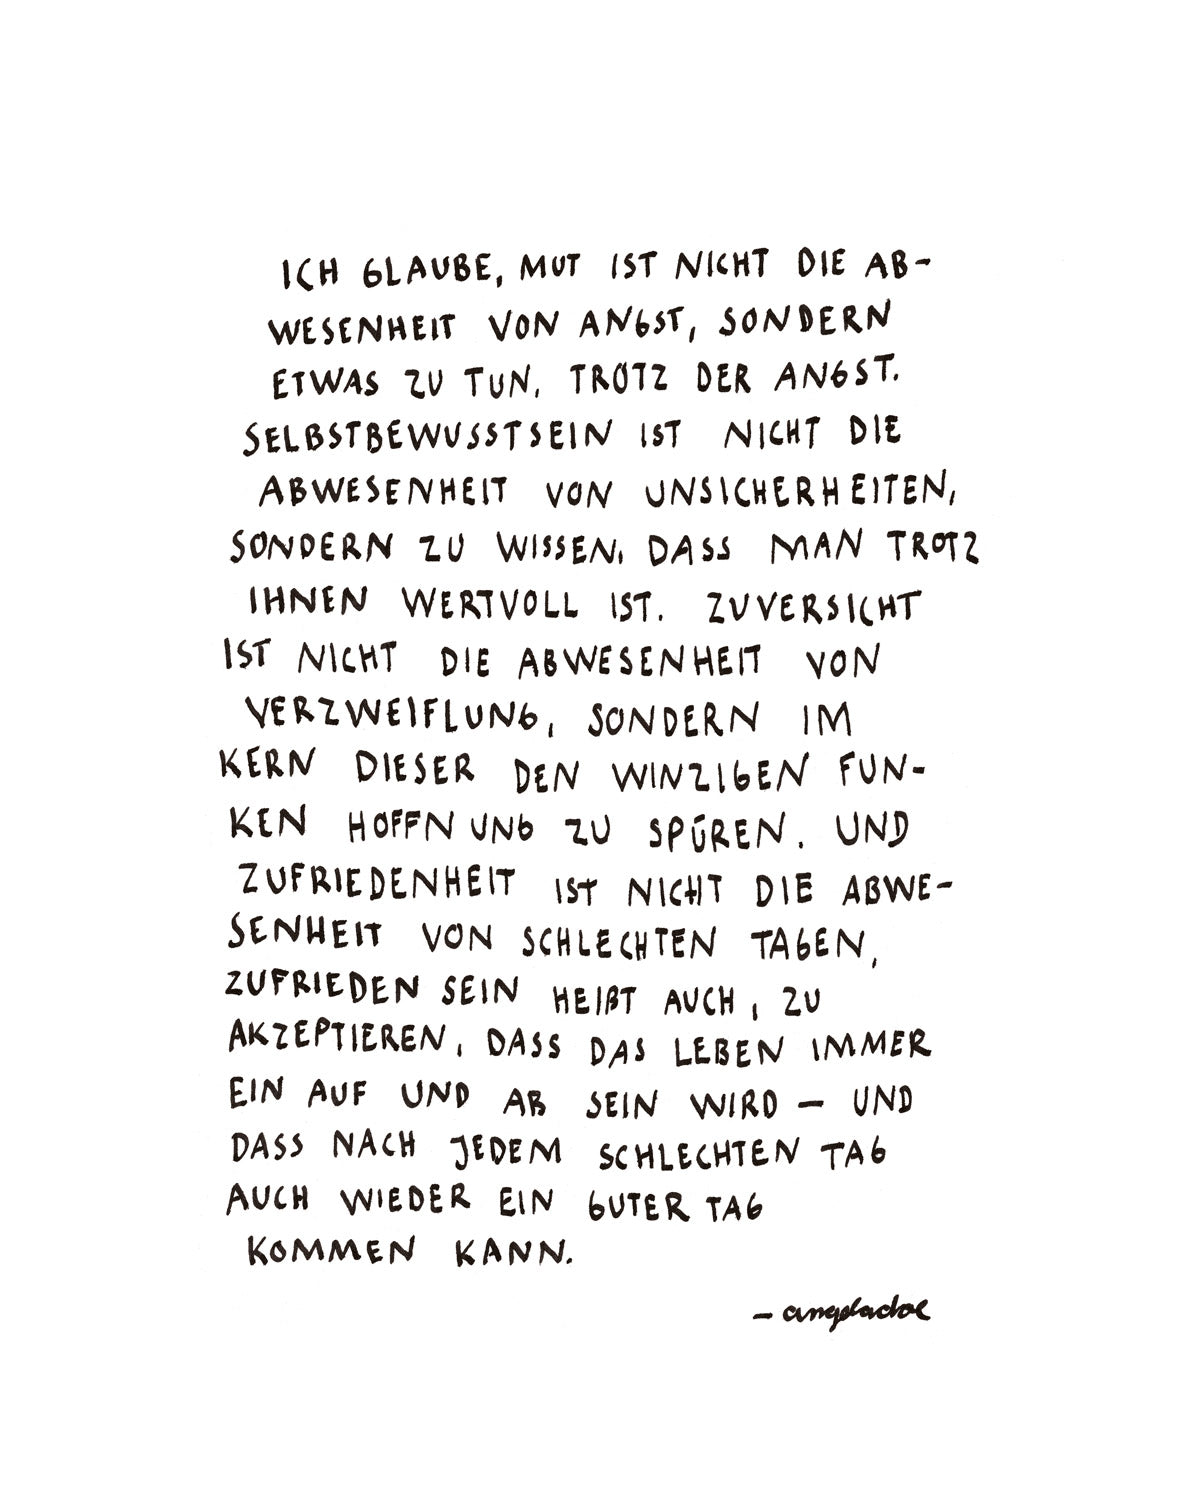 ICH GLAUBE, MUT IST NICHT DIE AB-
WESENHEIT VON ANGST, SONDERN
ETWAS ZU TUN, TROTZ DER ANGST.
SELBSTBEWUSSTSEIN IST NICHT DIE
ABWESENHEIT VON UNSICHERHEITEN,
SONDERN ZU WISSEN, DASS MAN TROTZ
IHNEN WERTVOLL IST. ZUVERSICHT
IST NICHT DIE ABWESENHEIT VON
VERZWEIFLUNG, SONDERN IM
KERN DIESER DEN WINZIGEN FUN-
KEN HOFFNUNG ZU SPÜREN. UND
ZUFRIEDENHEIT IST NICHT DIE ABWE-
SENHEIT VON SCHLECHTEN TAGEN,
ZUFRIEDEN SEIN HEIßT AUCH, ZU
AKZEPTIEREN, DASS DAS LEBEN IMMER
EIN AUF UND AB SEIN WIRD – UND
DASS NACH JEDEM SCHLECHTEN TAG
AUCH WIEDER EIN GUTER TAG
KOMMEN KANN.
– angeladoe